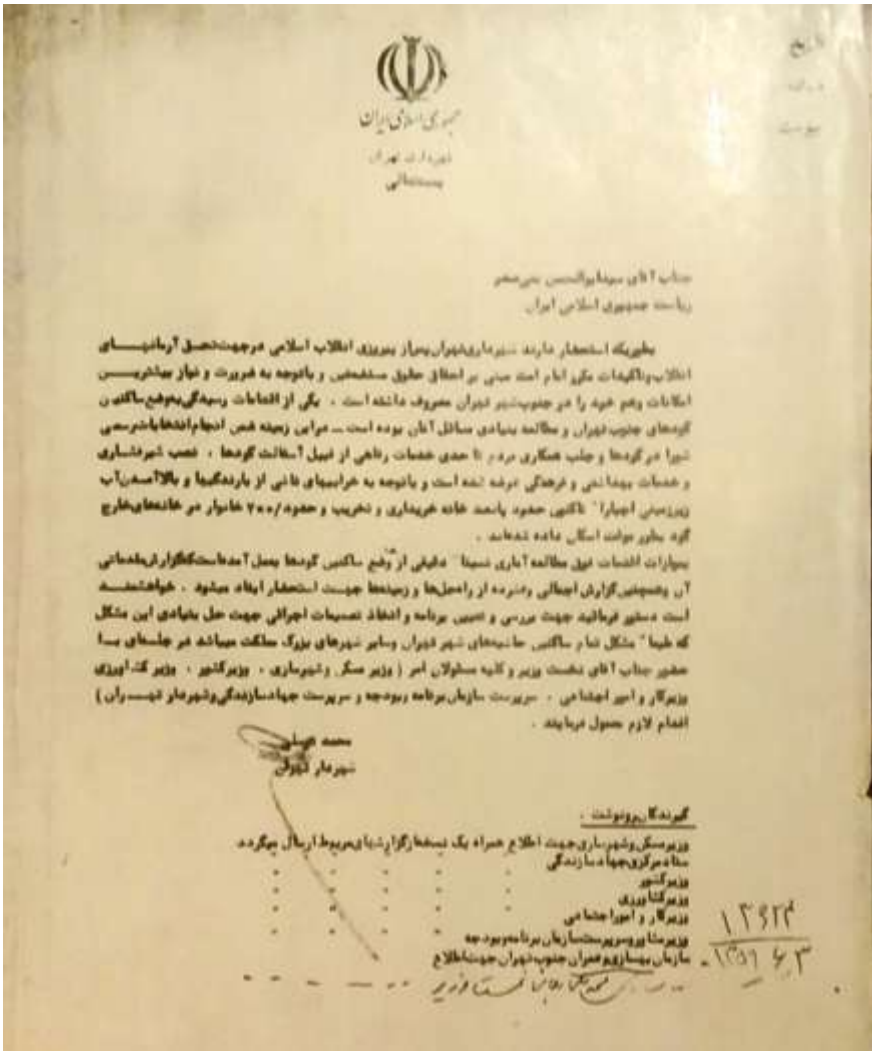 تاریخ
جمهوری اسلامی ایران
شهرداری تهران
بسمه‌تعالی
جناب آقای سیدابوالحسن بنی‌صدر
ریاست جمهوری اسلامی ایران
بطوریکه استحضار دارند شهرداری تهران پس از پیروزی انقلاب اسلامی در جهت تحقق آرمانهـــای
انقلاب و تاکیدات مکرر امام امت مبنی بر احقاق حقوق مستضعفین و باتوجه به ضرورت و نیاز بیشتریـــن
امکانات وهم خود را در جنوب شهر تهران مصروف داشته است . یکی از اقدامات رسیدگی بوضع ساکنیـن
گودهای جنوب تهران و مطالعه بنیادی مسائل آنان بوده است ــ در این زمینه ضمن انجام انتخابات رسمی
شورا در گودها و جلب همکاری مردم تا حدی خدمات رفاهی از قبیل آسفالت گودها ، نصب شیرفشاری
و خدمات بهداشتی و فرهنگی عرضه شده است و باتوجه به خرابیهای ناشی از بارندگیها و بالاآمـدن آب
زیرزمینی اجبارا" تاکنون حدود پانصد خانه خریداری و تخریب و حدود ۷۰۰/ خانوار در خانه‌های خارج
گود بطور موقت اسکان داده شده‌اند .
بموازات اقدمات فوق مطالعه آماری نسبتا" دقیقی از وضع ساکنین گودها بعمل آمده است که گزارش مقدماتی
آن وهمچنین گزارش اجمالی و فشرده از راه‌حل‌ها و زمینه‌ها جهـت استحضار ایفاد میشود . خواهشمنـــد
است دستور فرمائید جهت بررسی و تعیین برنامه و اتخاذ تصمیمات اجرائی جهت حل بنیادی این مشکل
که طبعا" مشکل تمام ساکنین حاشیه‌های شهر تهران وسایر شهرهای بزرگ مملکت میباشد در جلسه‌ای بـا
حضور جناب آقای نخست وزیر و کلیه مسئولان امر ( وزیر مسکن وشهرسازی ، وزیرکشور ، وزیر کشاورزی
وزیرکار و امور اجتماعی ، سرپرست سازمان برنامه وبودجه و سرپرست جهادسازندگی وشهردار تهـــران )
اقدام لازم معمول فرمایند .
محمد توسلی
شهردار تهران
گیرندگان رونوشت .
وزیرمسکن وشهرسازی جهت اطلاع همراه یک نسخه از گزارشهای مربوط ارسال میگردد
ستاد مرکزی جهاد سازندگی " " " " "
وزیرکشور " " " " "
وزیرکشاورزی " " " " "
وزیرکار و امور اجتماعی " " " " "
وزیرمشاور و سرپرست سازمان برنامه و بودجه
سازمان بهسازی و عمران جنوب تهران جهت اطلاع
۱۳۶۲۴
۱۳۵۹ ۶ ۳